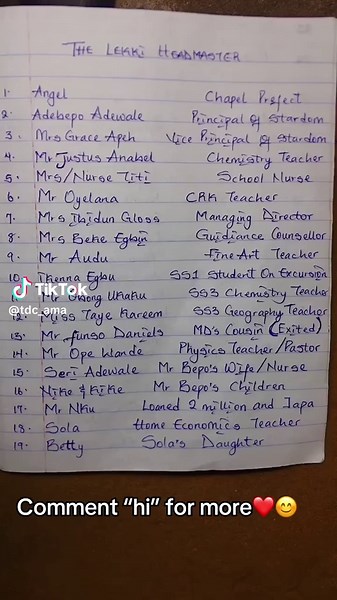 THE LEKKI HEADMASTER
1. Angel Chapel Prefect
2. Adebepo Adewale Principal of Stardom
3. Mrs Grace Apeh Vice Principal of Stardom
4. Mr Justus Anabel Chemistry Teacher
5. Mrs/Nurse Titi School Nurse
6. Mr Oyelana CRK Teacher
7. Mrs Ibidun Gloss Managing Director
8. Mrs Beke Egbin Guidiance Counsellor
9. Mr Audu Fine Art Teacher
10. Ikenna Egbu SS1 Student On Excursion
Mr Ukaku SS3 Chemistry Teacher
12. Miss Taye Kareem SS3 Geography Teacher
13. Mr Funso Daniels MD's Cousin (Exited)
14. Mr Ope Wande Physics Teacher/Pastor
15. Seri Adewale Mr Bepo's Wife/Nurse
16. Nike & Kike Mr Bepo's Children
17. Mr Nku Loaned 2 million and Japa
18. Sola Home Economics Teacher
19. Betty Sola's Daughter
TikTok
@tdc_ama
Comment “hi” for more❤️😊